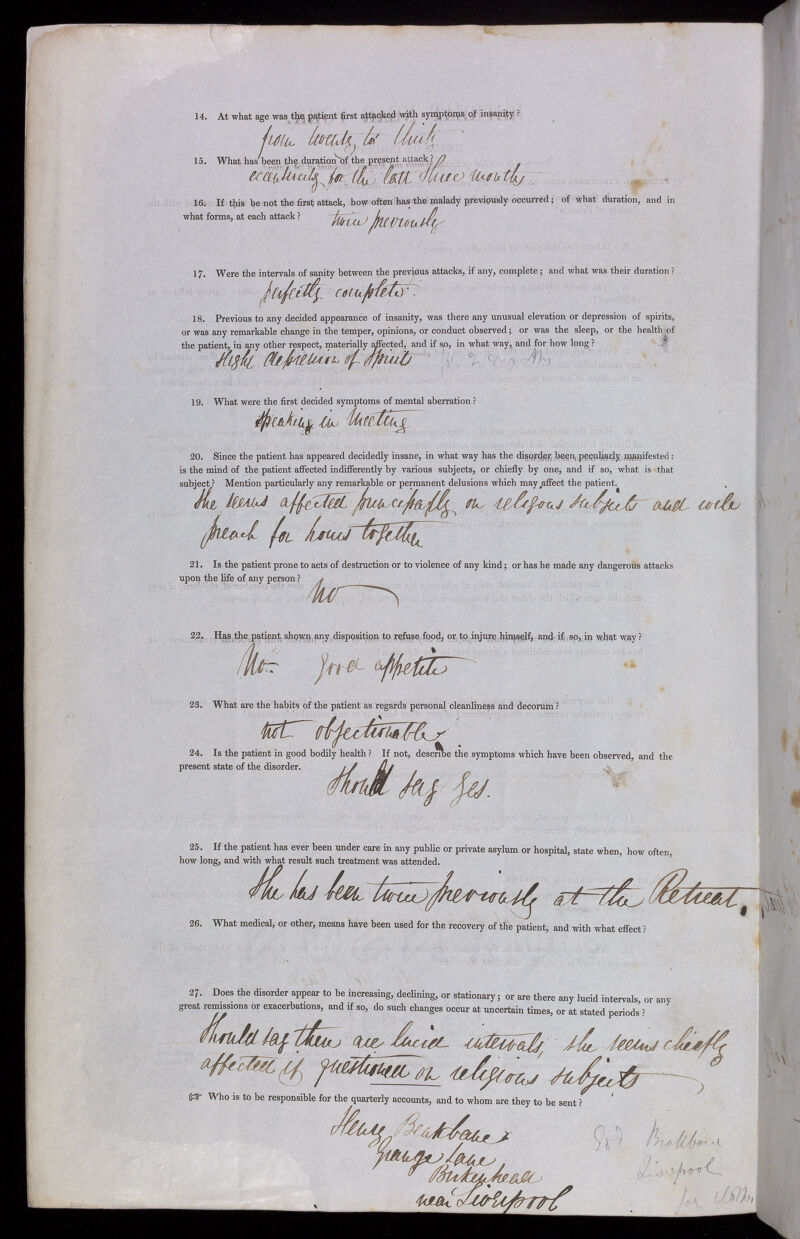 14. At what age was the patient first attacked with symptoms of insanity?
from twenty to thirty
15. What has been the duration of the present attack?
eccentricity for the last three months
16. If this be not the first attack, how often has the malady previously occurred; of what duration, and in
what forms, at each attack? twice previously
17. Were the intervals of sanity between the previous attacks, if any, complete; and what was their duration?
perfectly complete.
18. Previous to any decided appearance of insanity, was there any unusual elevation or depression of spirits,
or was any remarkable change in the temper, opinions, or conduct observed; or was the sleep, or the health of
the patient, in any other respect, materially affected, and if so, in what way, and for how long?
slight depression of spirit for 2 months
19. What were the first decided symptoms of mental aberration?
speaking in Meeting
20. Since the patient has appeared decidedly insane, in what way has the disorder been peculiarly manifested:
is the mind of the patient affected indifferently by various subjects, or chiefly by one, and if so, what is that
subject? Mention particularly any remarkable or permanent delusions which may affect the patient.
She seems affected principally on religous subjects and will
preach for hours together
21. Is the patient prone to acts of destruction or to violence of any kind; or has he made any dangerous attacks
upon the life of any person?
No
22. Has the patient shown any disposition to refuse food, or to injure himself, and if so, in what way?
No— good appetite
23. What are the habits of the patient as regards personal cleanliness and decorum?
not objectionable
24. Is the patient in good bodily health? If not, describe the symptoms which have been observed, and the
present state of the disorder.
Should say yes.
25. If the patient has ever been under care in any public or private asylum or hospital, state when, how often,
how long, and with what result such treatment was attended.
She has been twice previously at the Retreat.
26. What medical, or other, means have been used for the recovery of the patient, and with what effect?
27. Does the disorder appear to be increasing, declining, or stationary; or are there any lucid intervals, or any
great remissions or exacerbations, and if so, do such changes occur at uncertain times, or at stated periods?
Should say there are lucid intervals, she seems chiefly
affected if questioned on religious subjects
☞ Who is to be responsible for the quarterly accounts, and to whom are they to be sent?
Henry Beakbane
Grange Lane
Birkenhead
near Liverpool
Liverpool
for